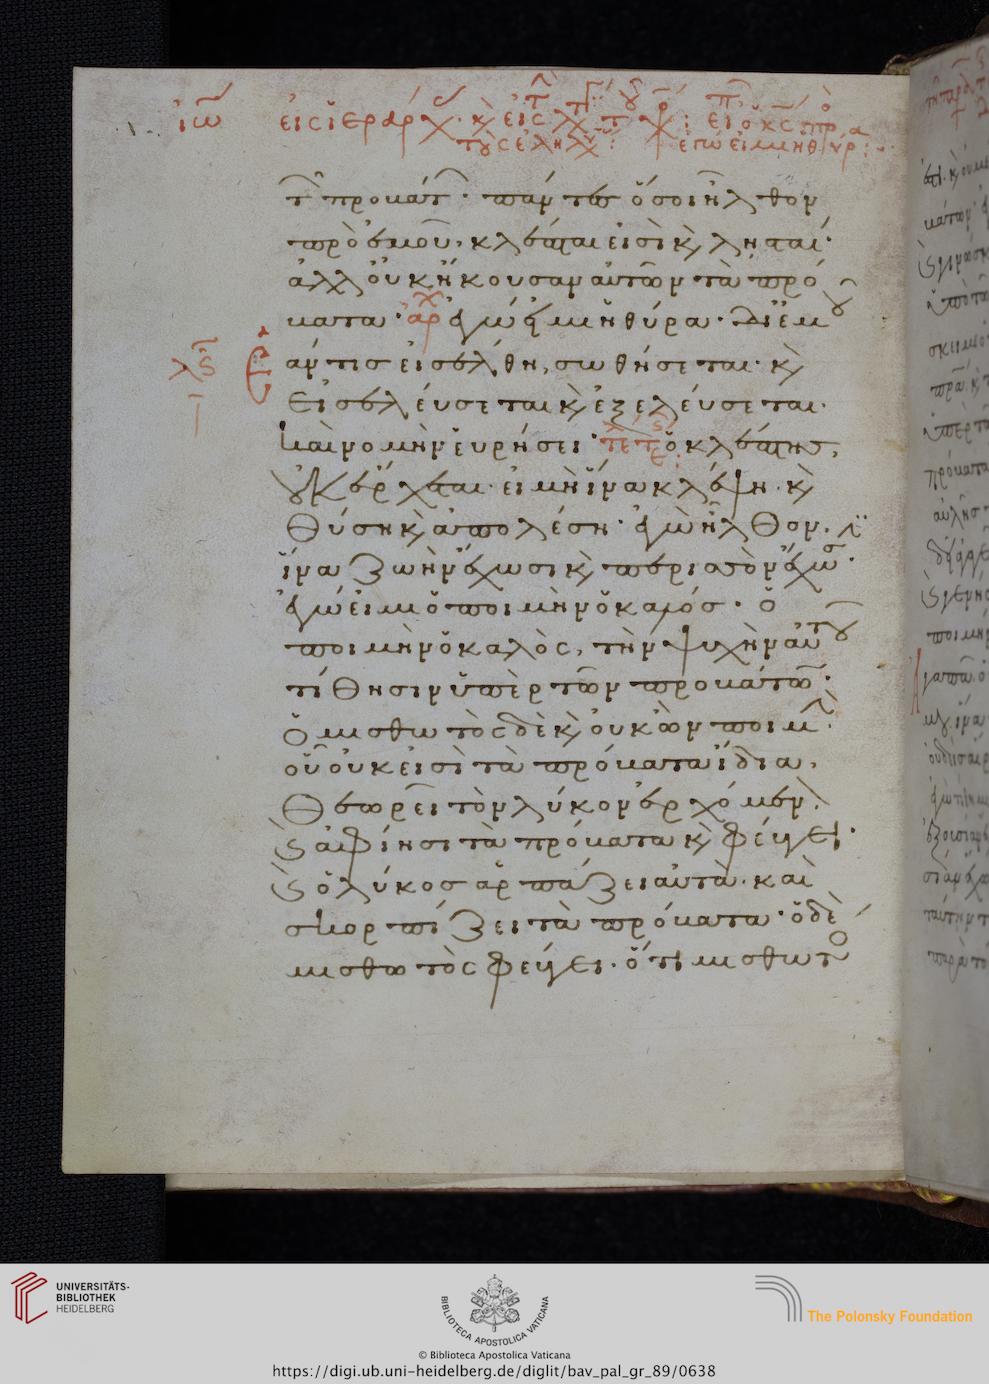 τῶν προβάτων· πάντες ὅσοι ἦλθον
πρὸ ἐμοῦ, κλέπται εἰσὶ κỳ λησταί·
ἀλλ οὐκ ἤκουσαν αὐτῶν τὰ πρό
βατα· ἐγώ εἰμι ἡ θύρα· δι ἐμοῦ
ἐάν τις εἰσέλθη, σωθήσεται· κỳ
εἰσελεύσεται κỳ ἐξελεύσεται·
καὶ νομὴν εὑρήσει· ὁ κλέπτης,
οὐκ ἔρχεται· εἰ μὴ ἵνα κλέψη· κỳ
θύση κỳ ἀπολέση· ἐγὼ ἦλθον,
ἵνα ζωὴν ἔχωσι κỳ περισσὸν ἔχωσιν·
ἐγώ εἰμι ὁ ποιμὴν ὁ καλός· ὁ
ποιμὴν ὁ καλὸς, τὴν ψυχὴν αὐτοῦ
τίθησιν ὑπὲρ τῶν προβάτων·
ὁ μισθωτὸς δὲ κỳ οὐκ ὢν ποιμὴν·
οὗ οὐκ εἰσὶ τὰ πρόβατα ἴδια,
θεωρεῖ τὸν λύκον ἐρχόμενον·
κỳ ἀφίησι τὰ πρόβατα κỳ φεύγει·
κỳ ὁ λύκος ἁρπάζει αὐτὰ· καὶ
σκορπίζει τὰ πρόβατα· ὁ δὲ
μισθωτὸς φεύγει· ὅτι μισθωτό
UNIVERSITÄTS-
BIBLIOTHEK
HEIDELBERG
BIBLIOTECA APOSTOLICA VATICANA
The Polonsky Foundation
© Biblioteca Apostolica Vaticana
https://digi.ub.uni-heidelberg.de/diglit/bav_pal_gr_89/0638